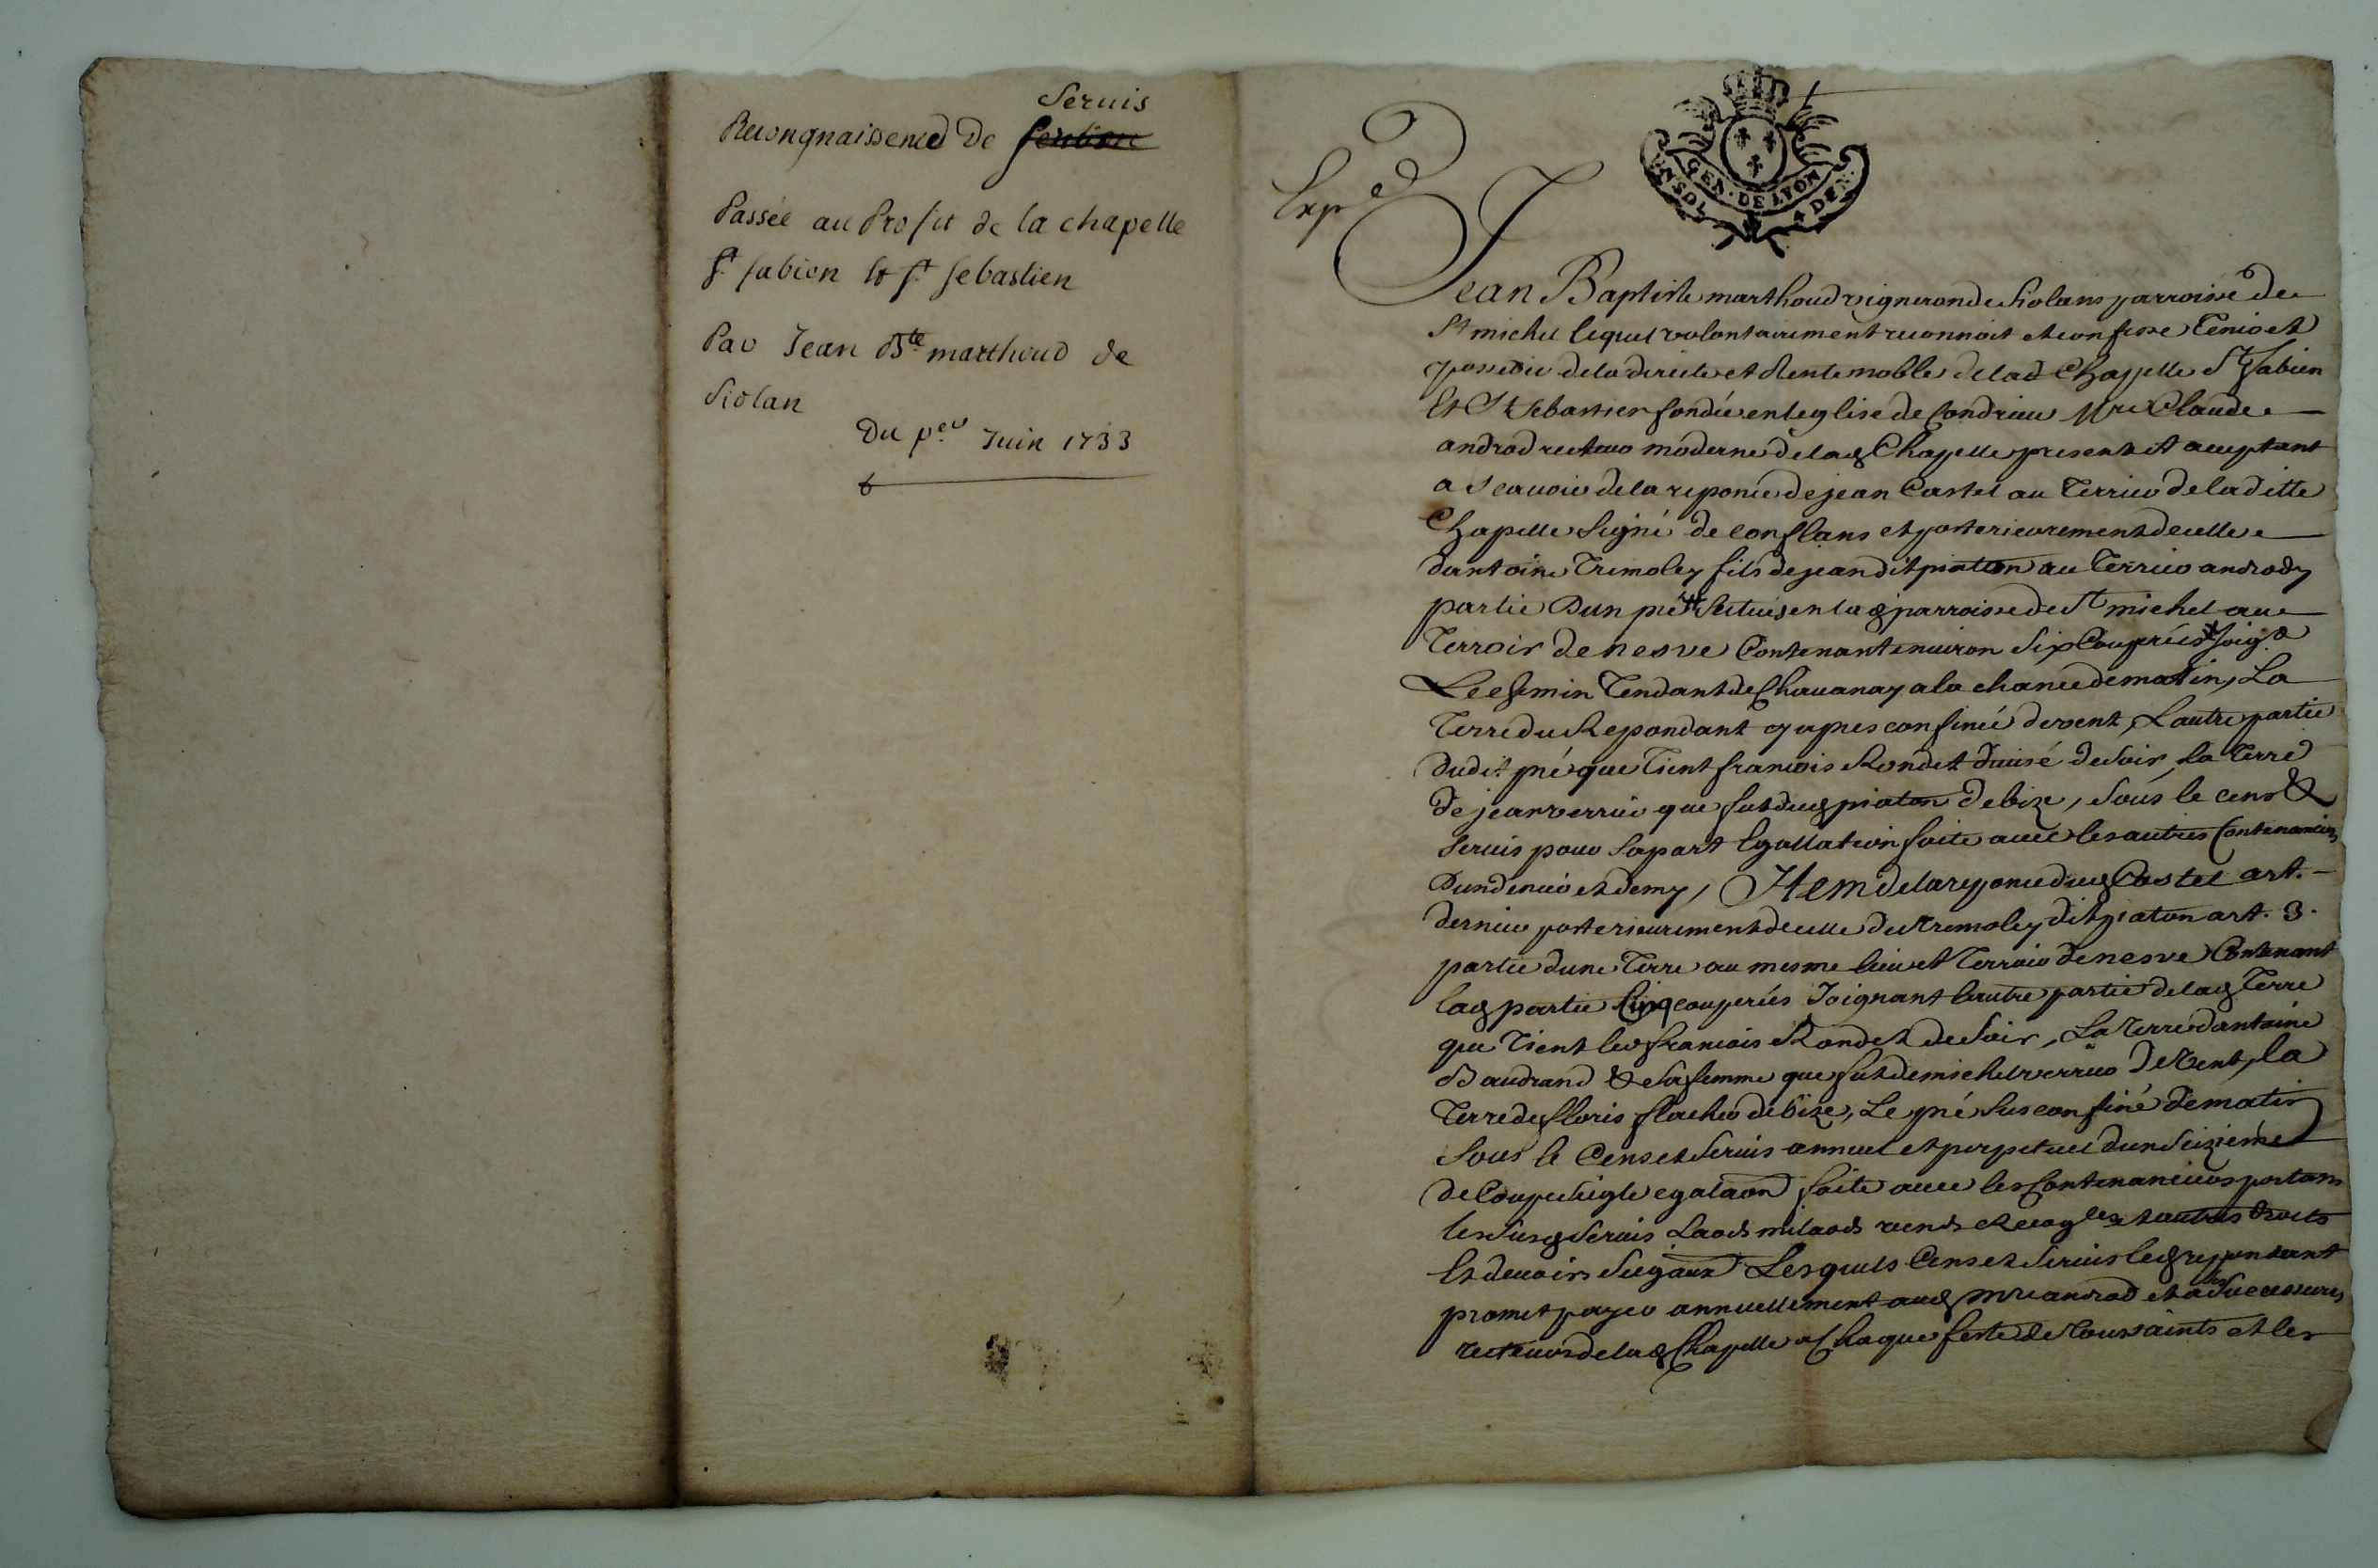 Servis
Recongnaissence de
Passée au Profit de la chapelle
St fabien Et St sebastien
Par Jean Bte marthoud de
Siolan
Du per Juin 1733
Expd
GEN. DE LYON
Jean Baptiste marthoud vigneron de Siolans parroisse de
St michel lequel volontairement reconnoit et confesse Tenir et
posseder de la directe et Rente noble de lad Chappelle St fabien
Et St Sebastien fondée en leglise de Condrieu Mre Claude
androd recteur moderne de lad Chapelle present et acceptant
a Scauoir de la reponce de jean Castel au Terrier de laditte
Chapelle Signé de Conflans et posterieurement de celle
dantoine Tremoley fils de jean dit piaton au Terrier androdz
partie Dun pré Scitué en lad parroisse de St michel au
Terroir de nesve Contenant enuiron Six Couperées joigt
Le chemin Tendant de Chauanay a la chance de matin, La
Terre du Repondant cy apres confinée de vent, Lautre partie
Dudit pré que Tient francois Rondet diuisé de Soir, La Terre
De jean verrier que fut dud piaton de bize, Sous le cens &
Seruis pour Sa part Egallation faite auec les autres Contenancier
Dun denier et demy, Item de la reponce dud Castel art.
dernier posterieurement de celle de Tremoley dit piaton art. 3.
partie dune Terre au mesme lieu et Terroir de nesve Contenant
lad partie Cinq couperées Joignant lautre partie de lad Terre
que Tient led francois Rondet de Soir, La Terre dantoine
Baudrand & Sa femme que fut de michel verrier de Vent, la
Terre de floris flacher de bize, Le pré Sus confiné de matin
Sous le Cens et Seruis annuel et perpetuel dun Seizieme
de Coupe Seigle egalaon faite auec les Contenanciers portans
les Susd Seruis Laods milaods reconces et autres droits
Et deuoirs Seigaux Lesquels Cens et Seruis led repondant
promet payer annuellement aud Mre androd et a ses Successeurs
recteurs de lad Chapelle a Chaque feste de Toussaints et les